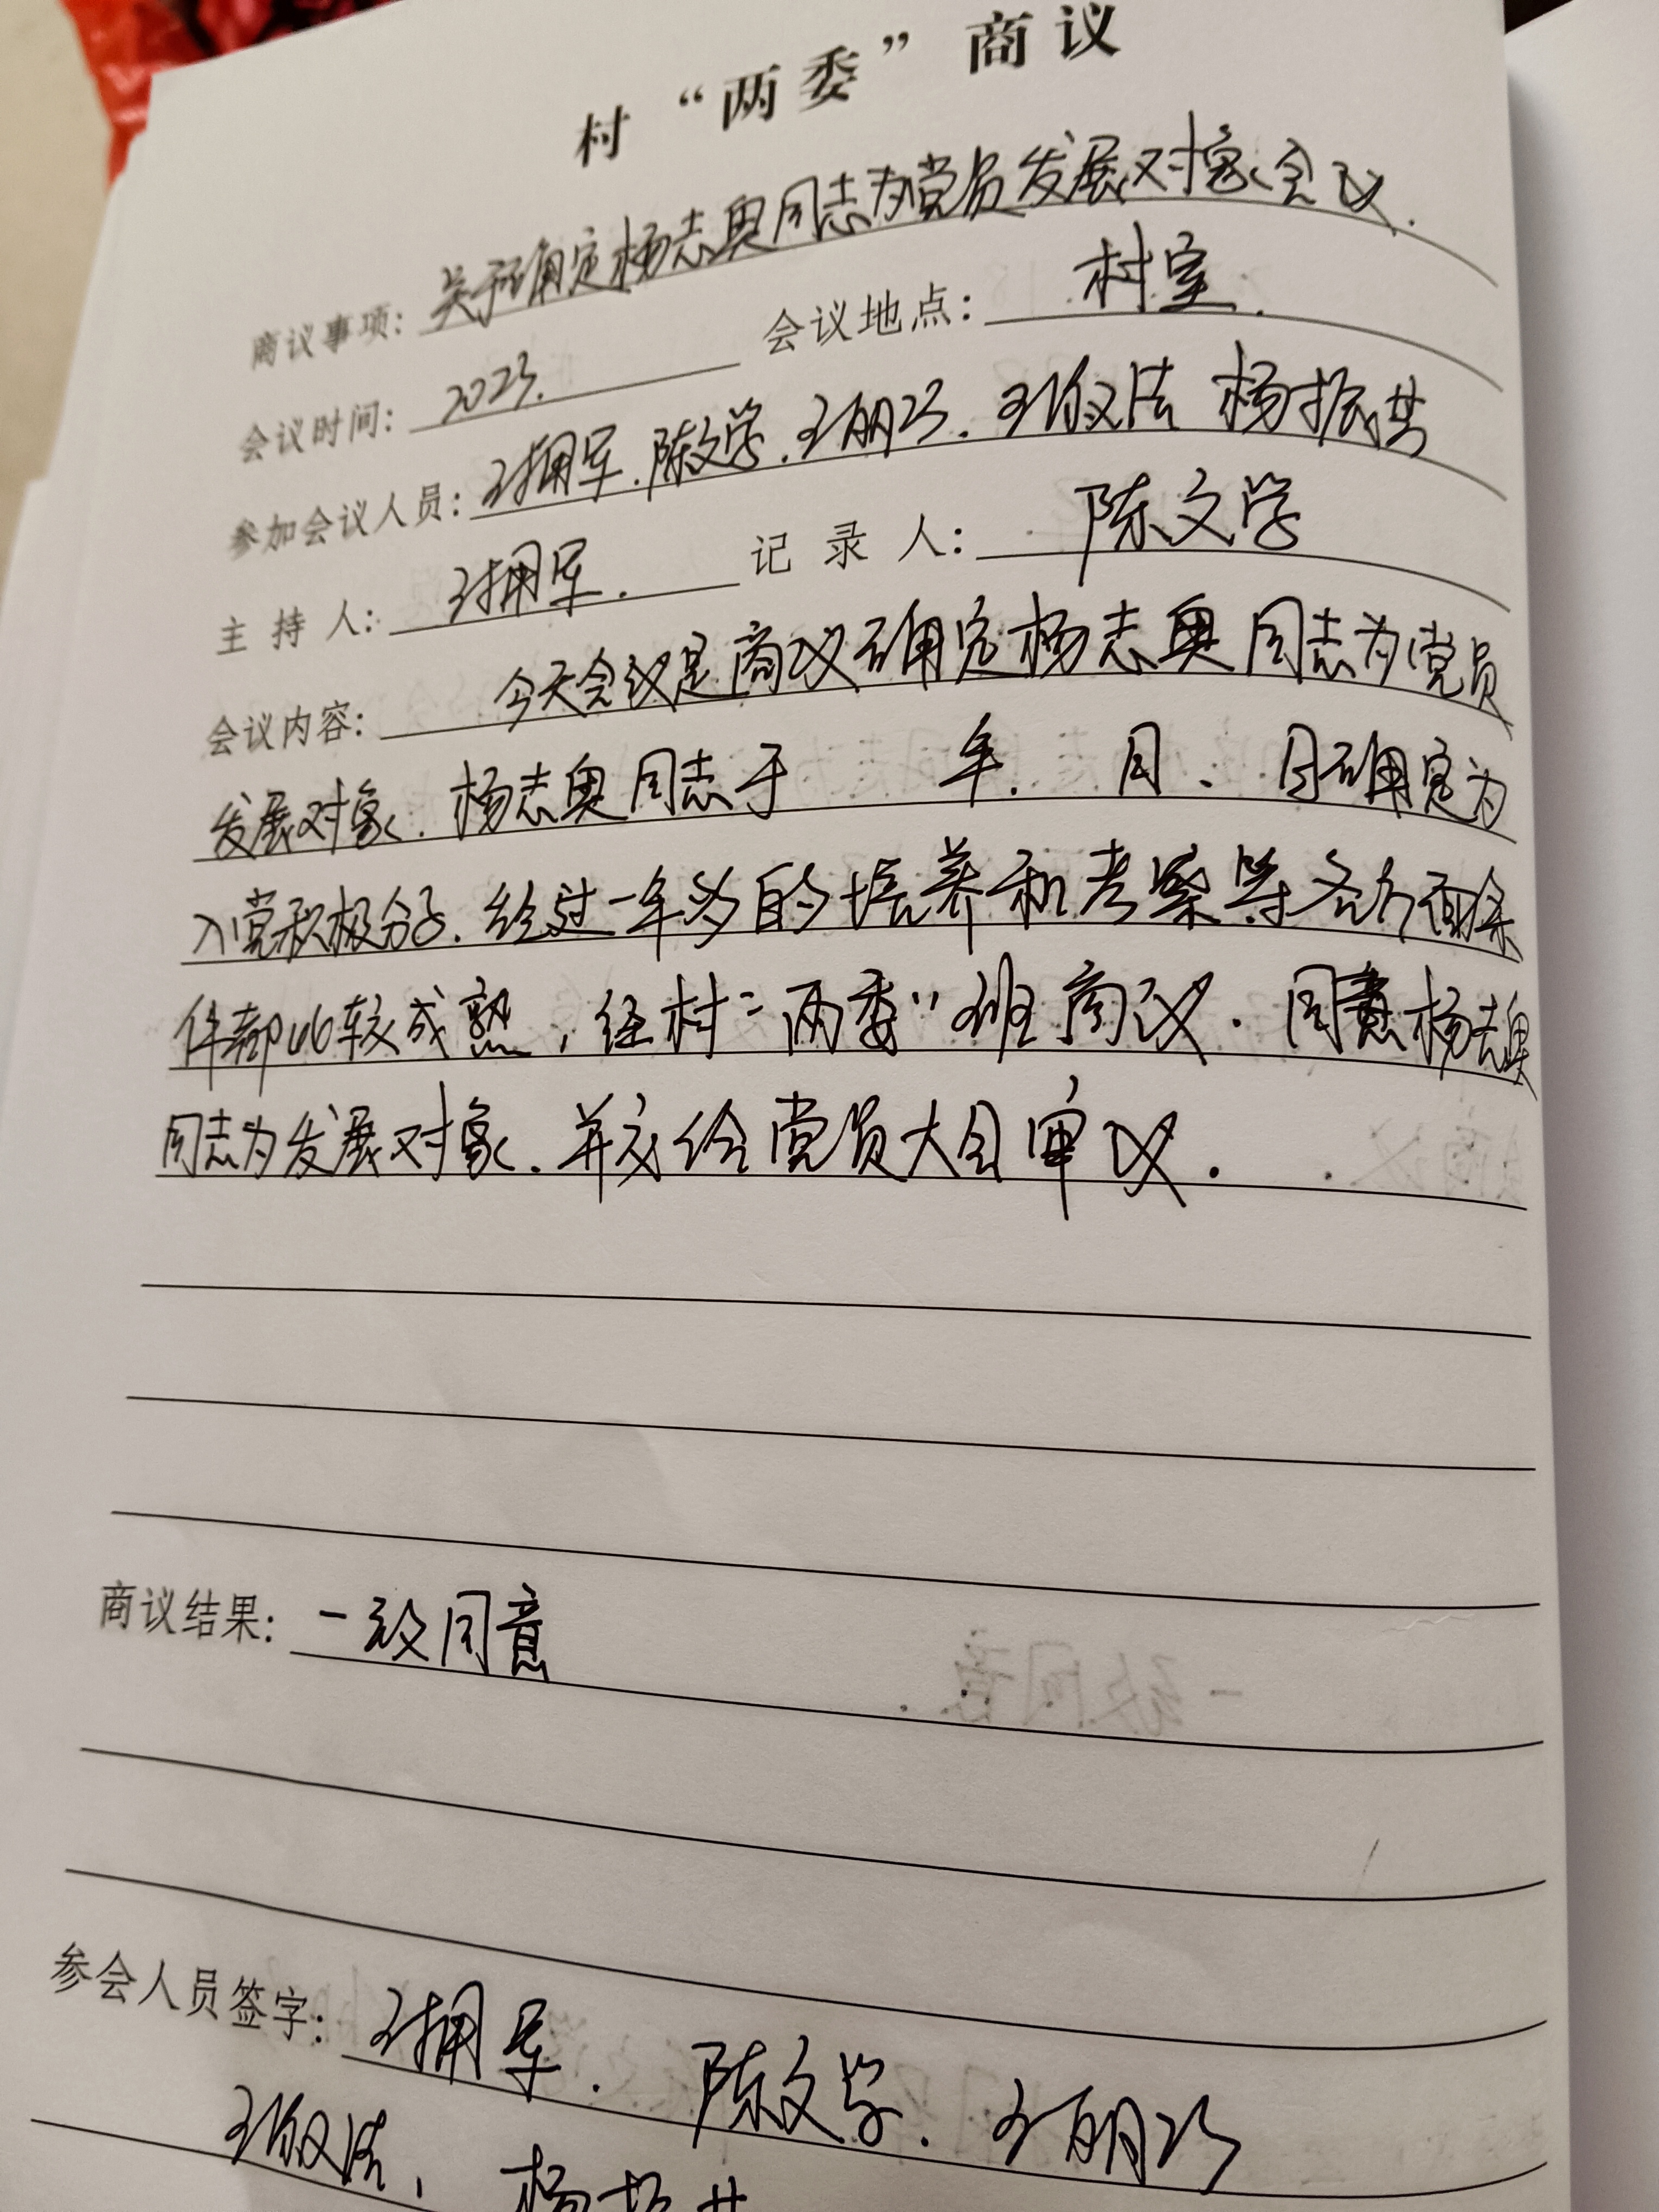 村“两委”商议
商议事项: 关于确定杨志奥同志为党员发展对象会议.
会议时间: 2023. 会议地点: 村室.
参加会议人员: 王拥军.陈文学.王朋巧.王俊法 杨振共
主持人: 王拥军. 记录人: 陈文学
会议内容: 今天会议是商议确定杨志奥同志为党员
发展对象.杨志奥同志于 年. 月、 日确定为
入党积极分子.经过一年多的培养和考察等各方面条
件都比较成熟,经村“两委”班商议.同意杨志奥
同志为发展对象.并交给党员大会审议.
商议结果: 一致同意
参会人员签字: 王拥军. 陈文学. 王朋巧
王俊法、杨振共